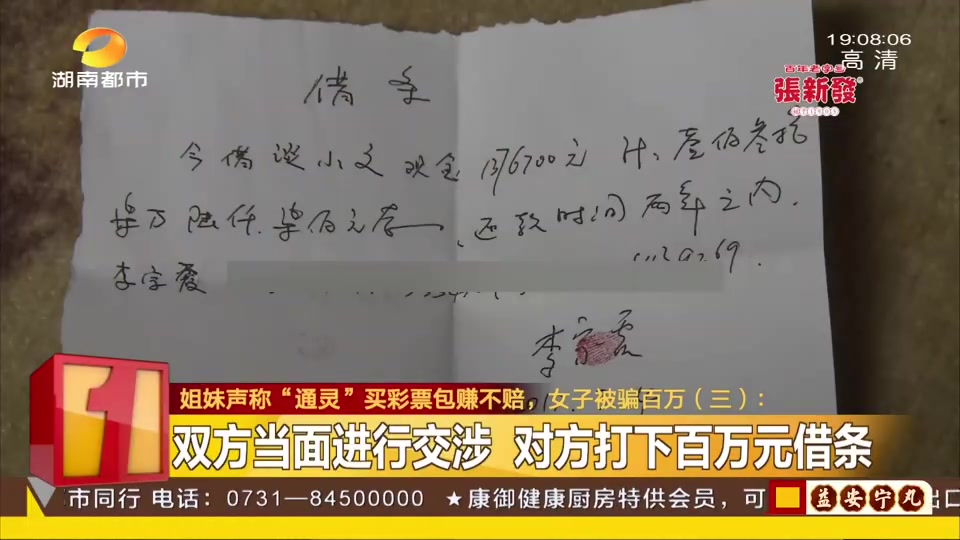 湖南都市
19:08:06
高清
百年老字号
張新發
借条
今借谈小文现金
6700元 计、壹佰叁拾
柒万陆仟、柒佰元
、还款时间两年之内.
李宗霞
69.
李宗霞
1
姐妹声称“通灵”买彩票包赚不赔，女子被骗百万（三）：
双方当面进行交涉 对方打下百万元借条
市同行 电话：0731—84500000 ★康御健康厨房特供会员，可
益安宁丸
出口